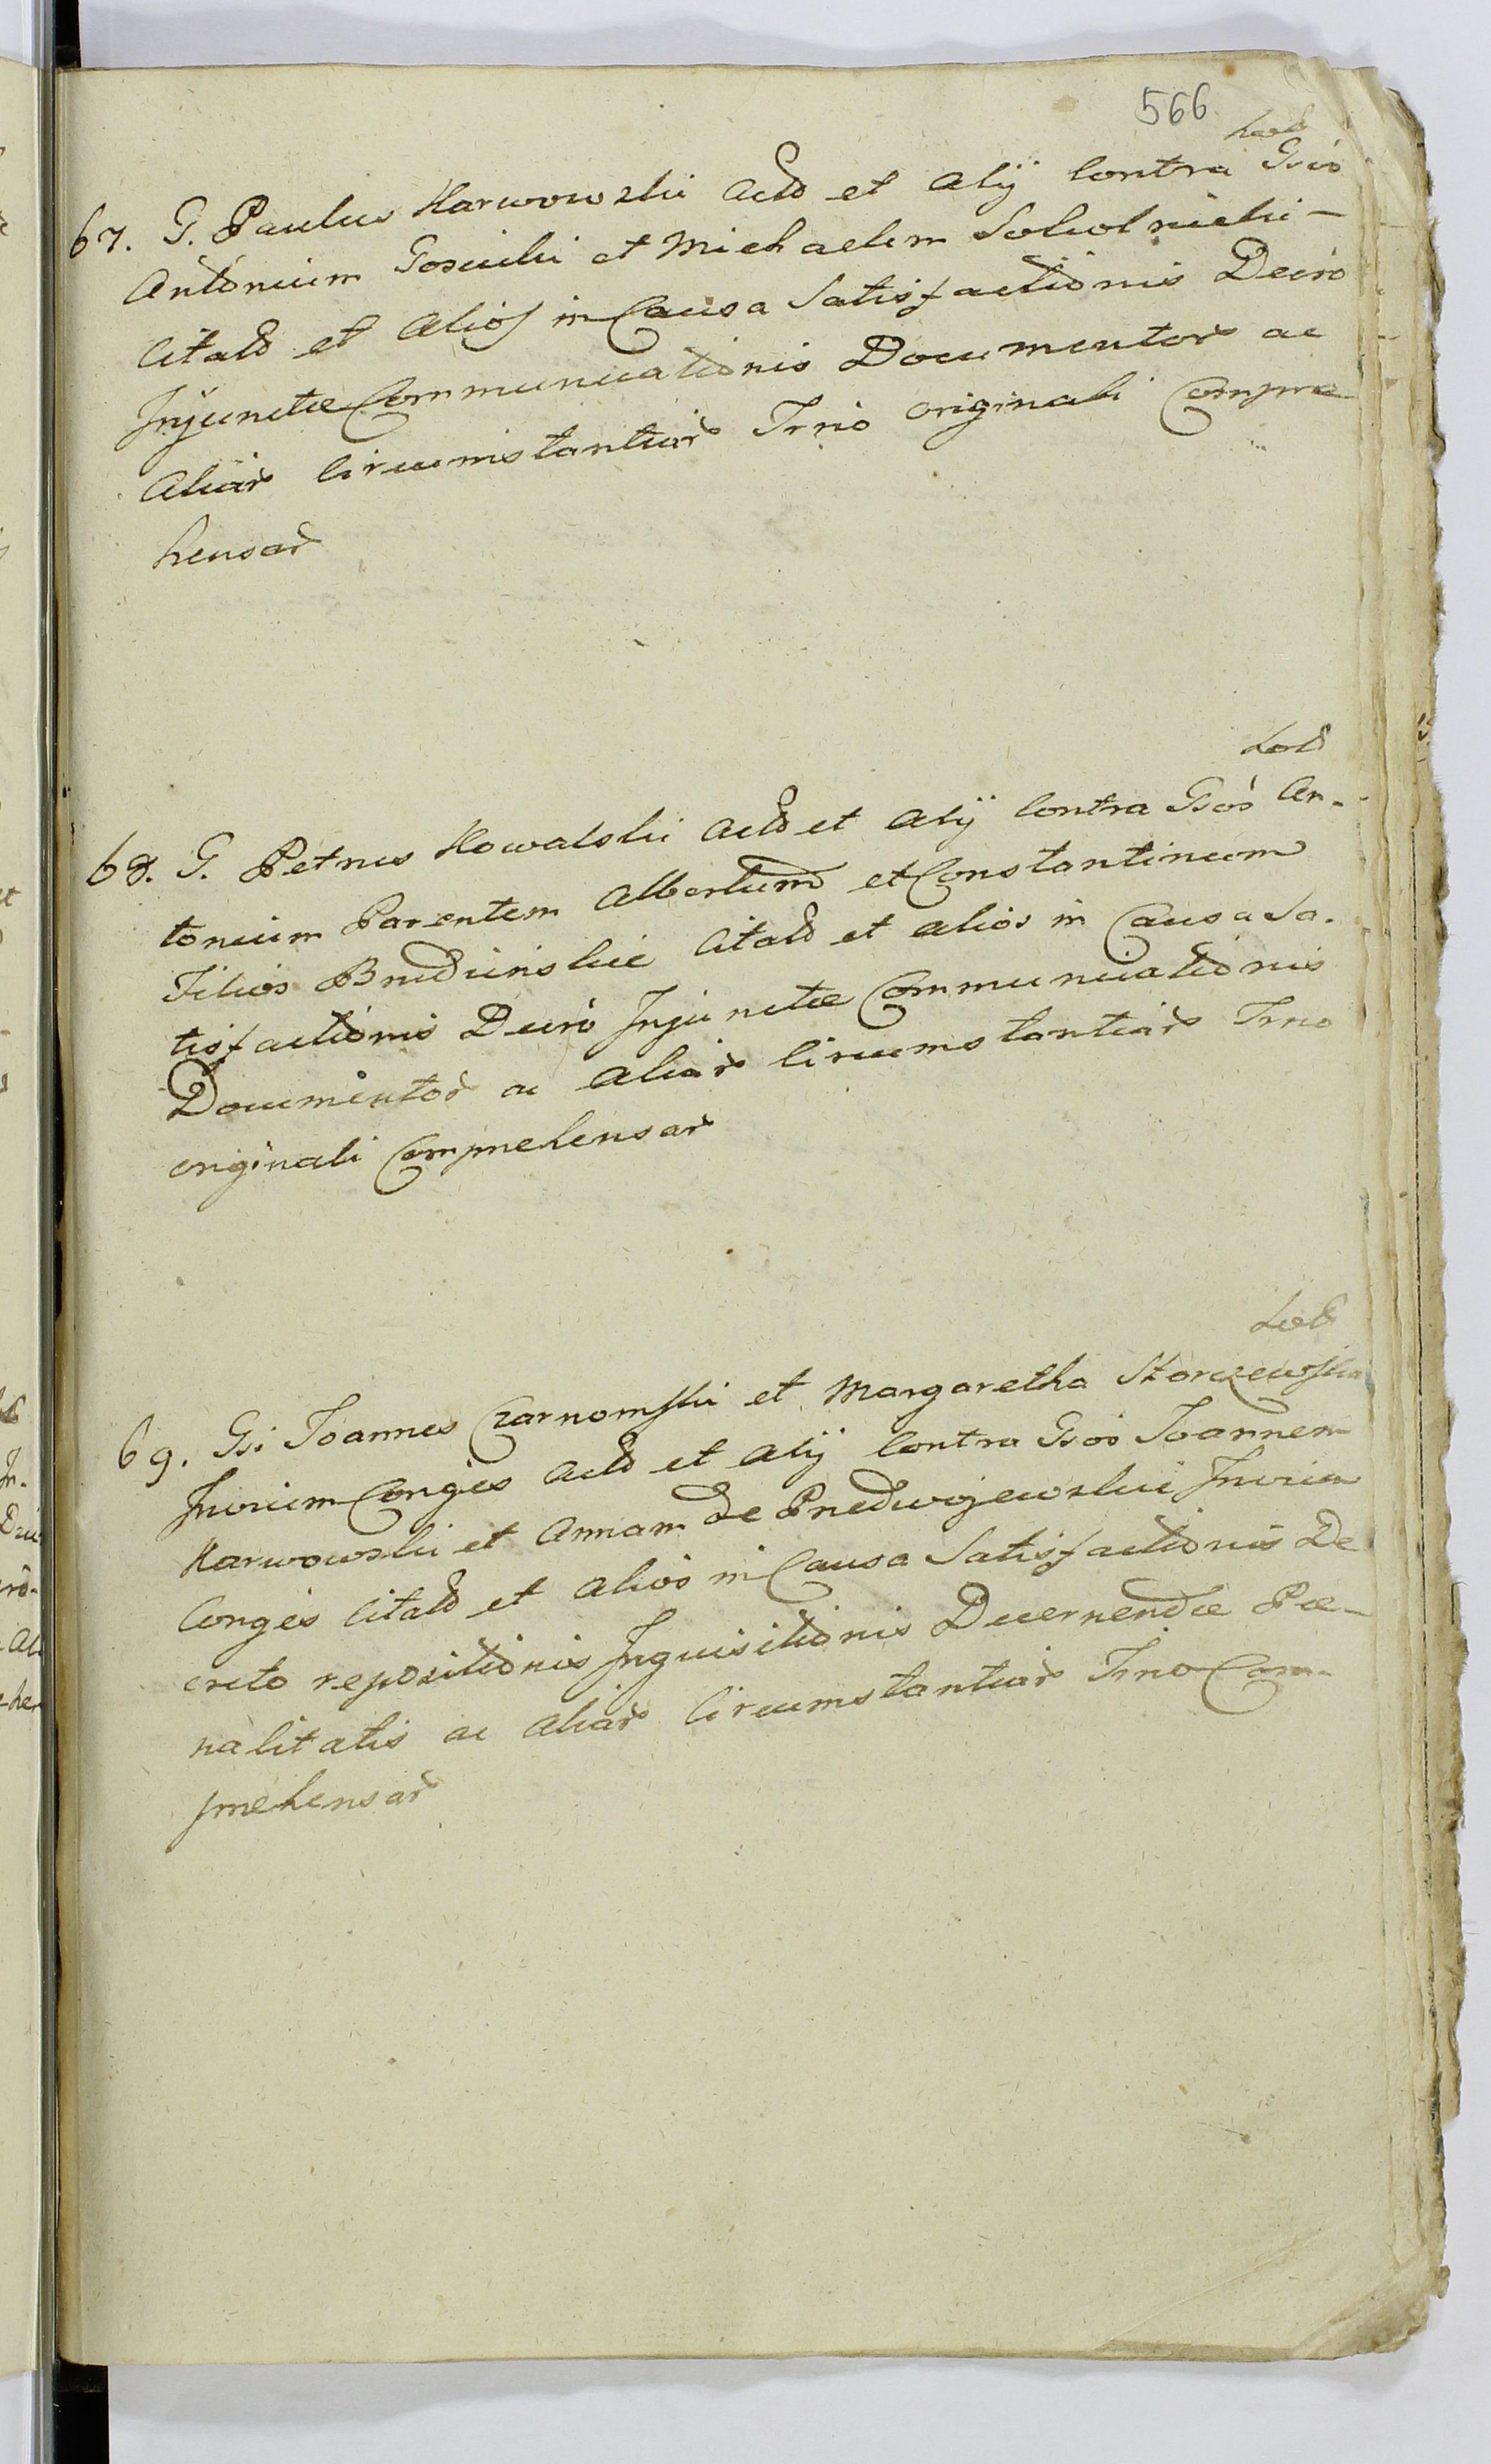 566
67. G. Paulus Karwowski Actò et Alÿ Contra Gsos
Antonium Gosicki et Michaelem Sokolnicki —
Citatò et Alios in Causa Satisfactionis Decró
Injunctæ Communicationis Documentor ac
Aliar Circumstantiar Trnó originali Compre
hensar
68. G. Petrus Kowalski Actò et Alÿ Contra Gsós An-
tonium Parentem Albertum et Constantinum
Filios Brudzinskie Citatò et alios in Causa Sa-
tisfactionis Decró Injunctæ Communicationis
Documentor ac Aliar Circumstantiar Trno
originali Comprehensar
69. Gsi Joannes Czarnomski et Margaretha Skarzewska
Invicem Conges Actò et Alÿ Contra Gsos Joannem
Karwowski et Annam de Przedwojewskie Invicem
Conges Citatò et Alios in Causa Satisfactionis De
creto repositionis Inquisitionis Decernendæ Pœ-
nalitatis ac Aliar Circumstantiar Trno Com-
prehensar